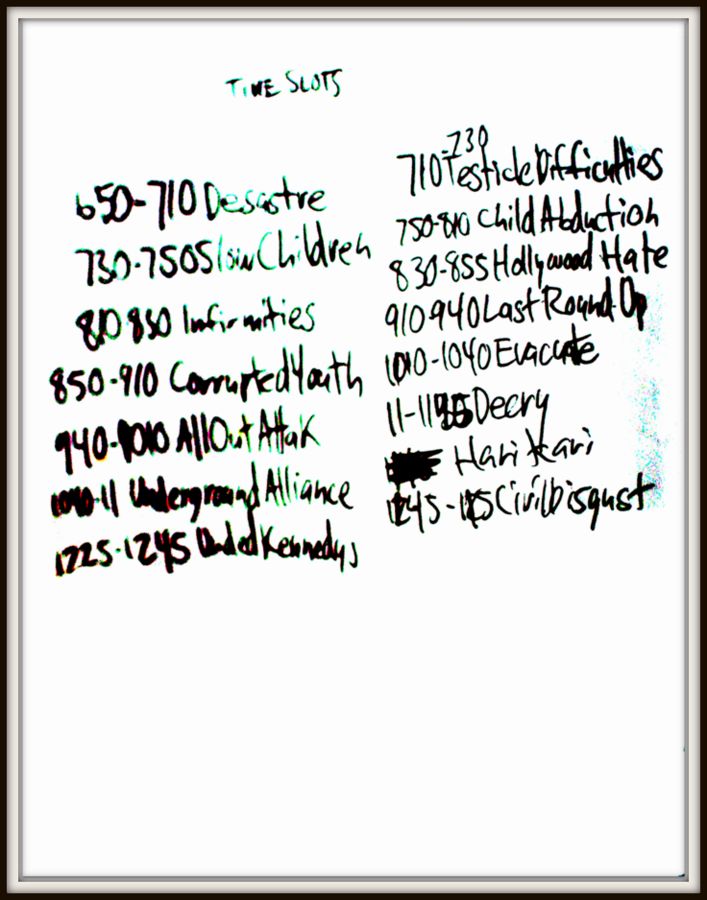 TIME SLOTS
650-710 Desastre
730-750 Slain Children
810 830 Infirmities
850-910 Corrupted Youth
940-1010 All Out Attak
1040-11 Underground Alliance
1225-1245 Unded Kennedys
710-730 Testicle Difficulties
750-810 Child Abduction
830-855 Hollywood Hate
910 940 Last Round Up
1010-1040 Evacuate
11-11 Decry
Hari Kari
1245-125 Civil Disgust